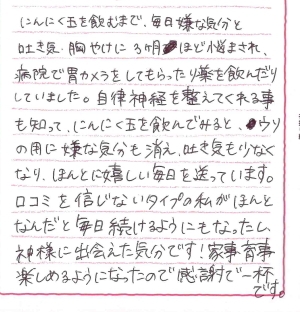 にんにく玉を飲むまで、毎日嫌な気分と
吐き気・胸やけに3ヶ月ほど悩まされ、
病院で胃カメラをしてもらったり薬を飲んだり
していました。自律神経を整えてくれる事
も知って、にんにく玉を飲んでみると、ウソ
の用に嫌な気分も消え、吐き気も少なく
なり、ほんとに嬉しい毎日を送っています。
口コミを信じないタイプの私がほんと
なんだと毎日続けるようにもなったし、
神様に出会えた気分です!家事育事
楽しめるようになったので感謝で一杯
です。